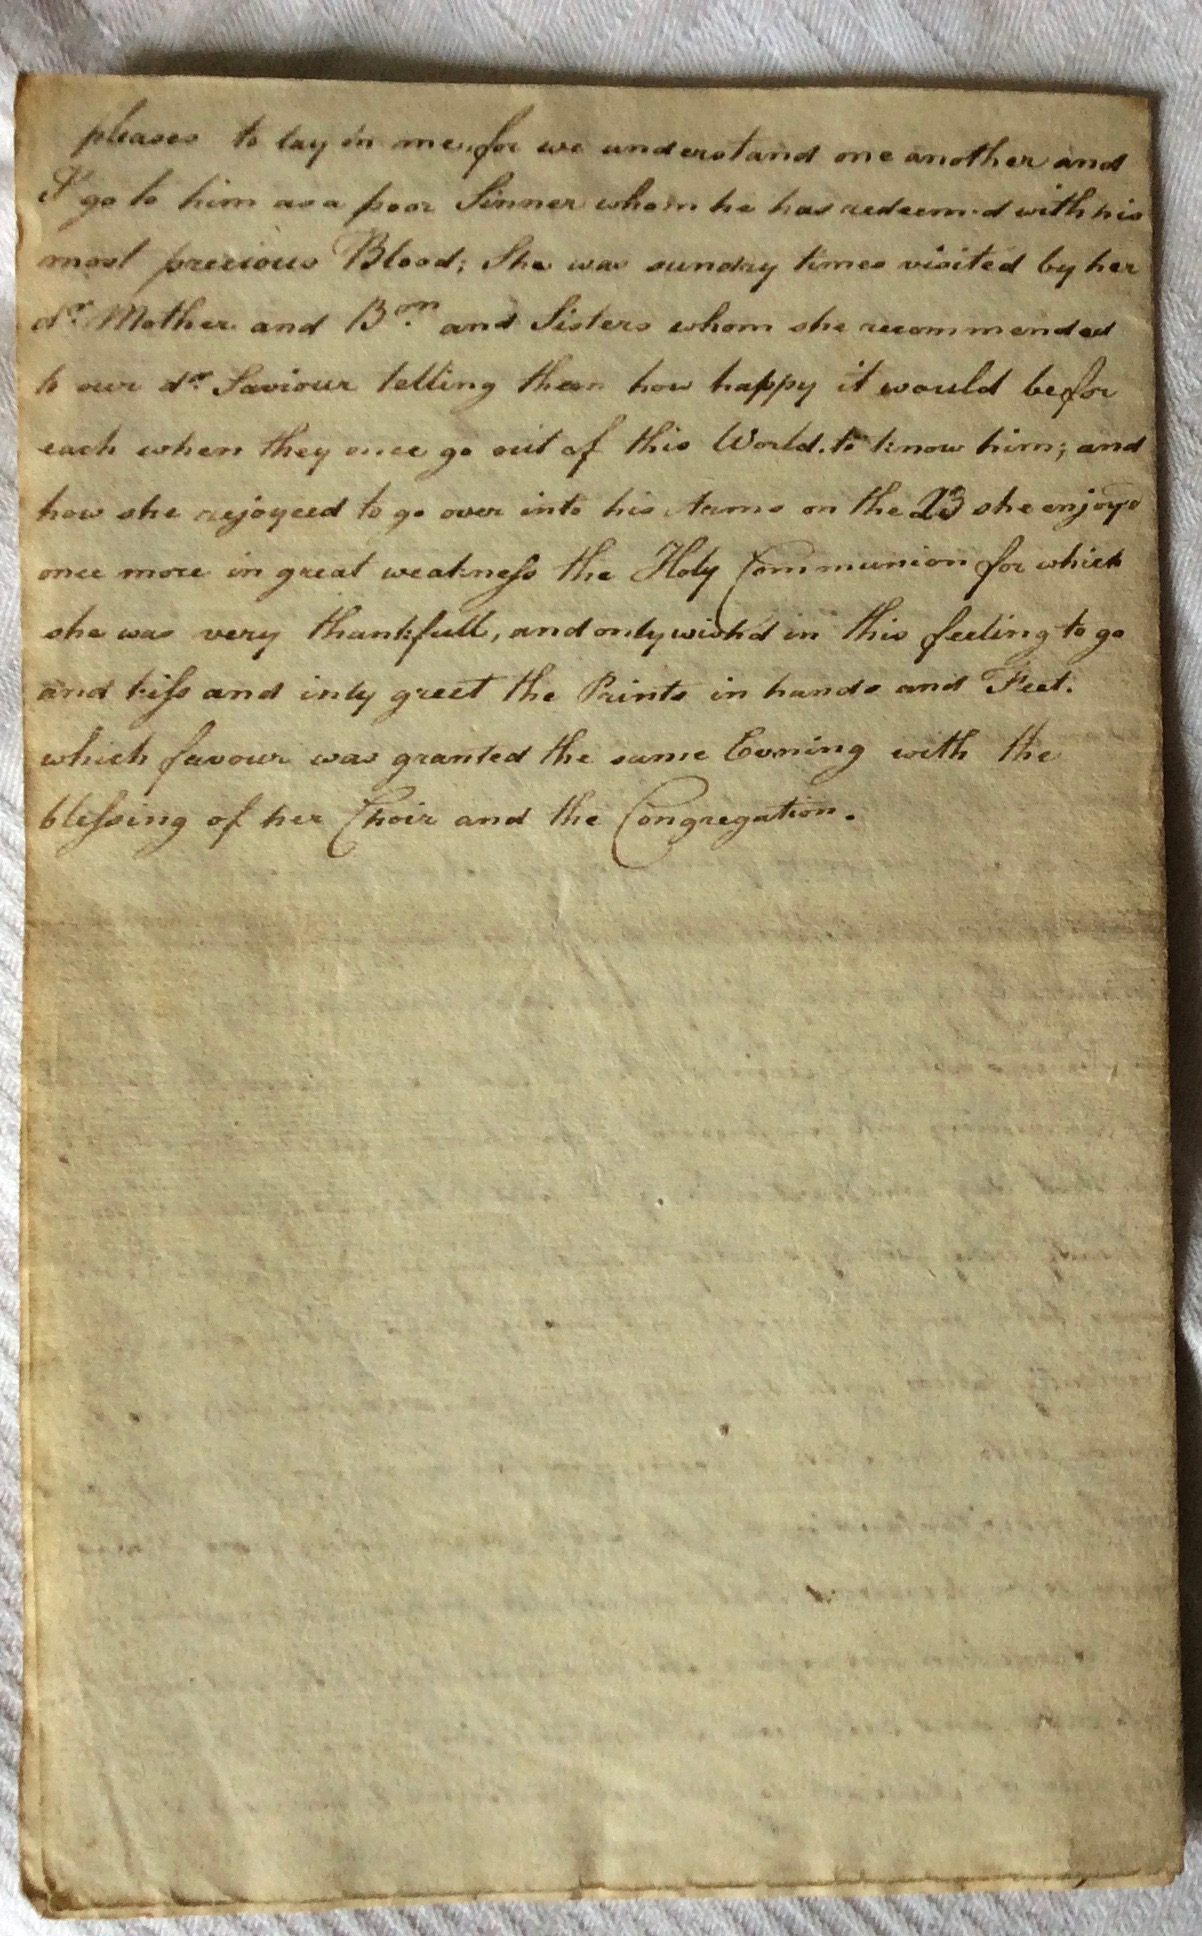 pleases to lay in me, for we understand one another and
I go to him as a poor Sinner whom he has redeem'd with his
most precious Blood; She was sundry times visited by her
dr. Mother and Brn. and Sisters whom she recommended
to our dr. Saviour telling them how happy it would be for
each when they once go out of this World. to know him; and
how she rejoyced to go over into his Arms on the 23 she enjoy'd
once more in great weakness the Holy Communion for which
she was very thankfull, and only wish'd in this feeling to go
and kiss and inly greet the Prints in hands and Feet.
which favour was granted the same Evning with the
blessing of her Choir and the Congregation.